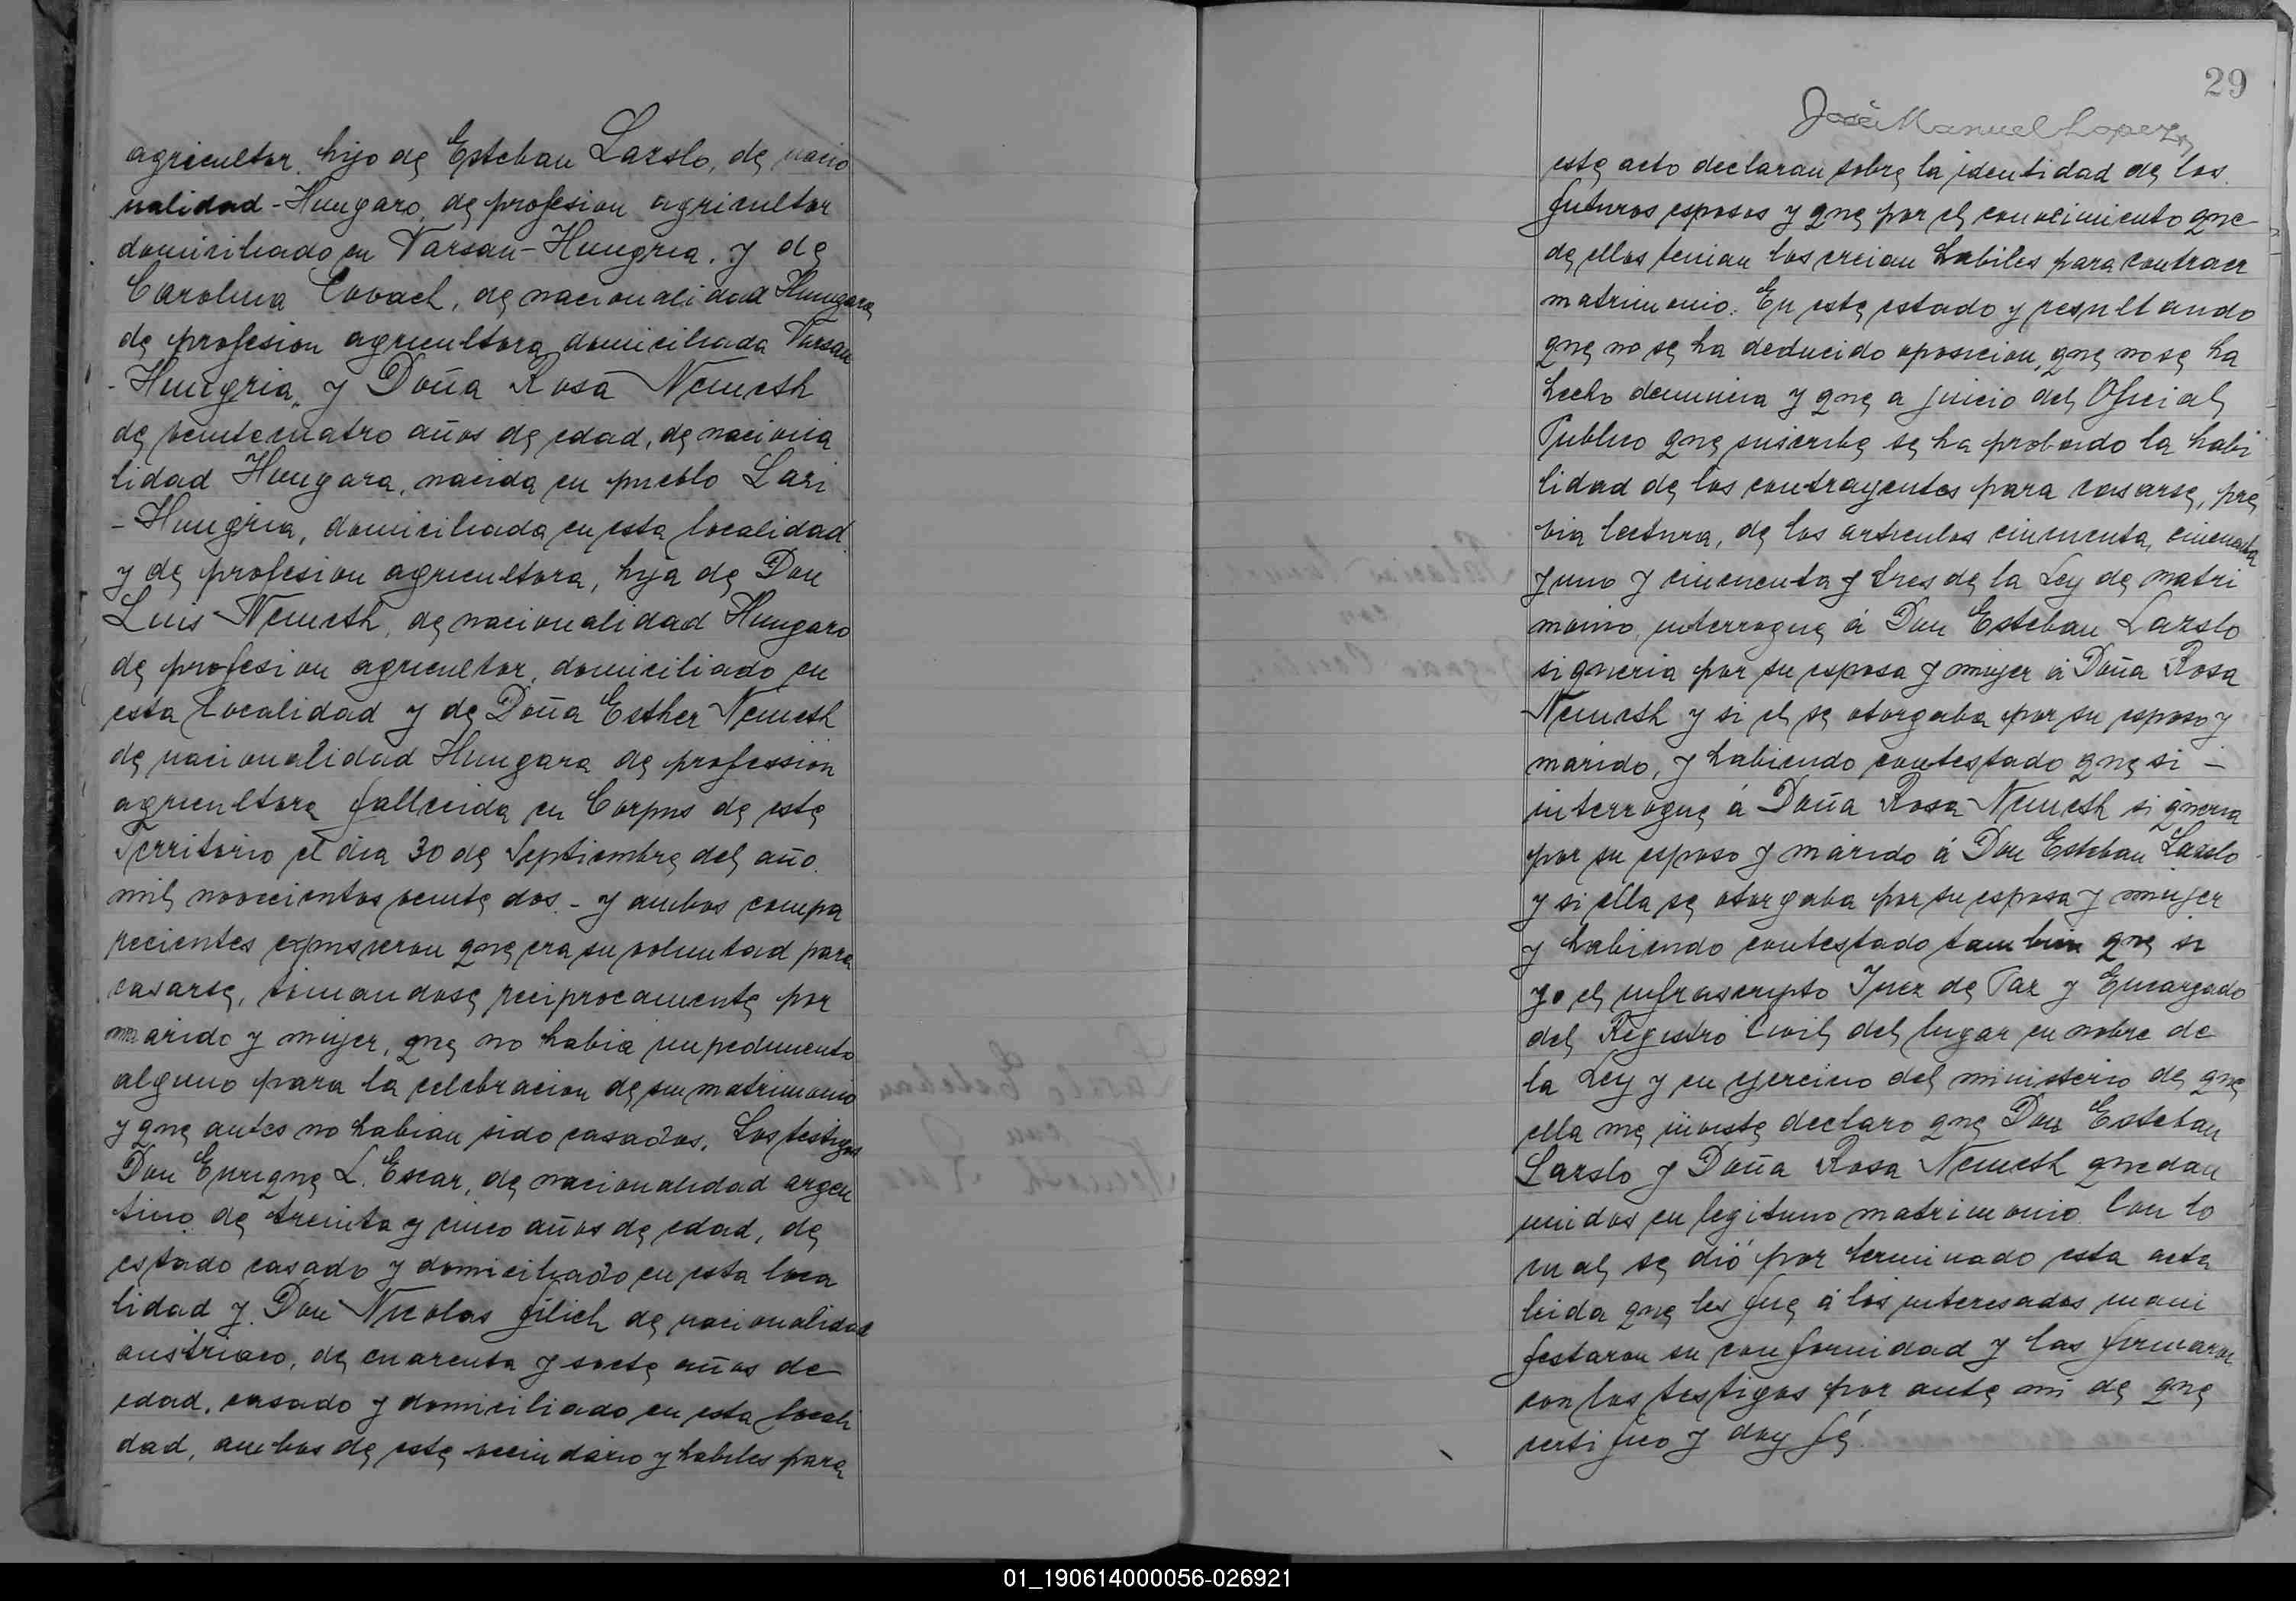 agricultor, hijo de Esteban Larslo, de nacio
nalidad - Hungaro, de profesion agricultor
domiciliado en Varsau - Hungria. y de
Carolina Covach, de nacionalidad Hungara
de profesion agricultora domiciliada Varsau
- Hungria, y Doña Rosa Nemeth
de veintecuatro años de edad, de naciona
lidad Hungara, nacida en pueblo Lari
- Hungria, domiciliada en esta localidad
y de profesion agricultora, hija de Don
Luis Nemeth, de nacionalidad Hungaro
de profesion agricultor, domiciliado en
esta localidad y de Doña Esther Nemeth
de nacionalidad Hungara de profession
agricultora fallecida en Corpus de este
Territorio el dia 30 de Septiembre del año
mil novecientos veinte dos. - y ambos compa
recientes expusieron que era su voluntad para
casarse, tomandose reciprocamente por
marido y mujer, que no habia impedimento
alguno para la celebracion de su matrimonio
y que antes no habian sido casados. Los testigos
Don Enrique L. Escar, de nacionalidad argen
tino de treinta y cinco años de edad, de
estado casado y domiciliado en esta loca
lidad y Don Nicolas filich de nacionalidad
austriaco, de cuarenta y siete años de
edad, casado y domiciliado en esta locali
dad, ambos de este vecindario y habiles para
29
José Manuel Lopez
este acto declaran sobre la identidad de los
futuros esposos y que por el conocimiento que
de ellos tenian los creian habiles para contraer
matrimonio. En este estado y resultando
que no se ha deducido oposicion, que no se ha
hecho denuncia y que a juicio del Oficial
Publico que suscribe se ha probado la habi
lidad de los contrayentes para casarse, pre
via lectura, de los articulos cincuenta, cincuenta
y uno y cincuenta y tres de la Ley de matri
monio, interrogue á Don Esteban Larslo
si queria por su esposa y mujer á Doña Rosa
Nemeth y si el se otorgaba por su esposo y
marido, y habiendo contestado que si -
interrogue á Doña Rosa Nemeth si queria
por su esposo y marido á Don Esteban Larslo
y si ella se otorgaba por su esposa y mujer
y habiendo contestado tambien que si
yo el infrascripto Juez de Paz y Encargado
del Registro Civil del lugar en nobre de
la Ley y en ejercicio del ministerio de que
ella me inviste declaro que Don Esteban
Larslo y Doña Rosa Nemeth quedan
unidos en legitimo matrimonio. Con lo
cual se dió por terminado esta acta
leida que les fue á los interesados mani
festaron su conformidad y las firmaron
con los testigos por ante mi de que
certifico y doy fé
01_190614000056-026921